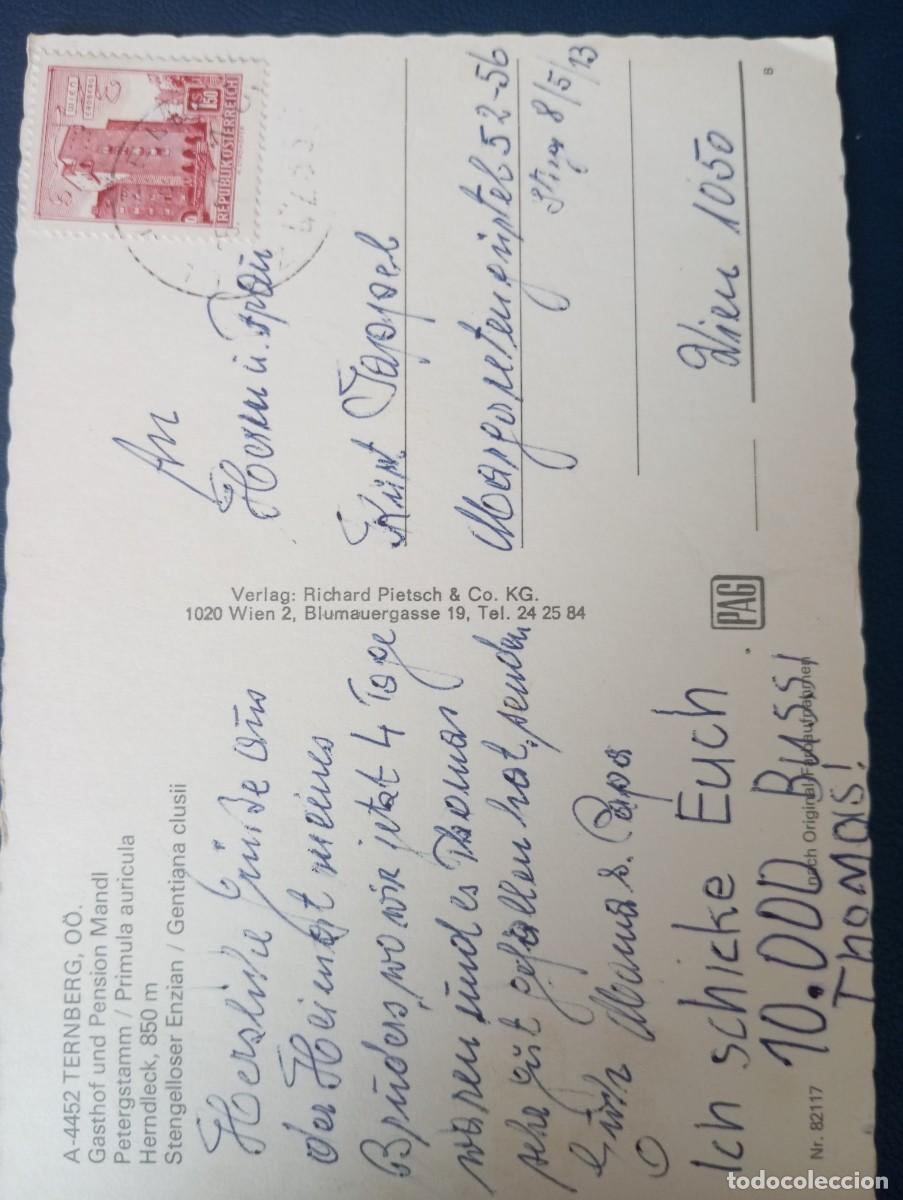 A-4452 TERNBERG, OÖ.
Gasthof und Pension Mandl
Petergstamm / Primula auricula
Herndleck, 850 m
Stengelloser Enzian / Gentiana clusii
Herzliche Grüße aus
der Heimat meines
Bruders, wo wir jetzt 4 Tage
waren und es Thomas
sehr gut gefallen hat, senden
Euch Mama u. Papa
Ich schicke Euch
10.000 Bussi
Thomas!
Nr. 82117
nach Original Farbaufnahmen
Verlag: Richard Pietsch & Co. KG.
1020 Wien 2, Blumauergasse 19, Tel. 24 25 84
PAG
WIEN
ERDBERG
S 1.50
REPUBLIK ÖSTERREICH
An
Herrn u. Frau
Kurt
Margaretengürtel 52-56
Stiege 8/5/13
Wien 1050
B
todocoleccion